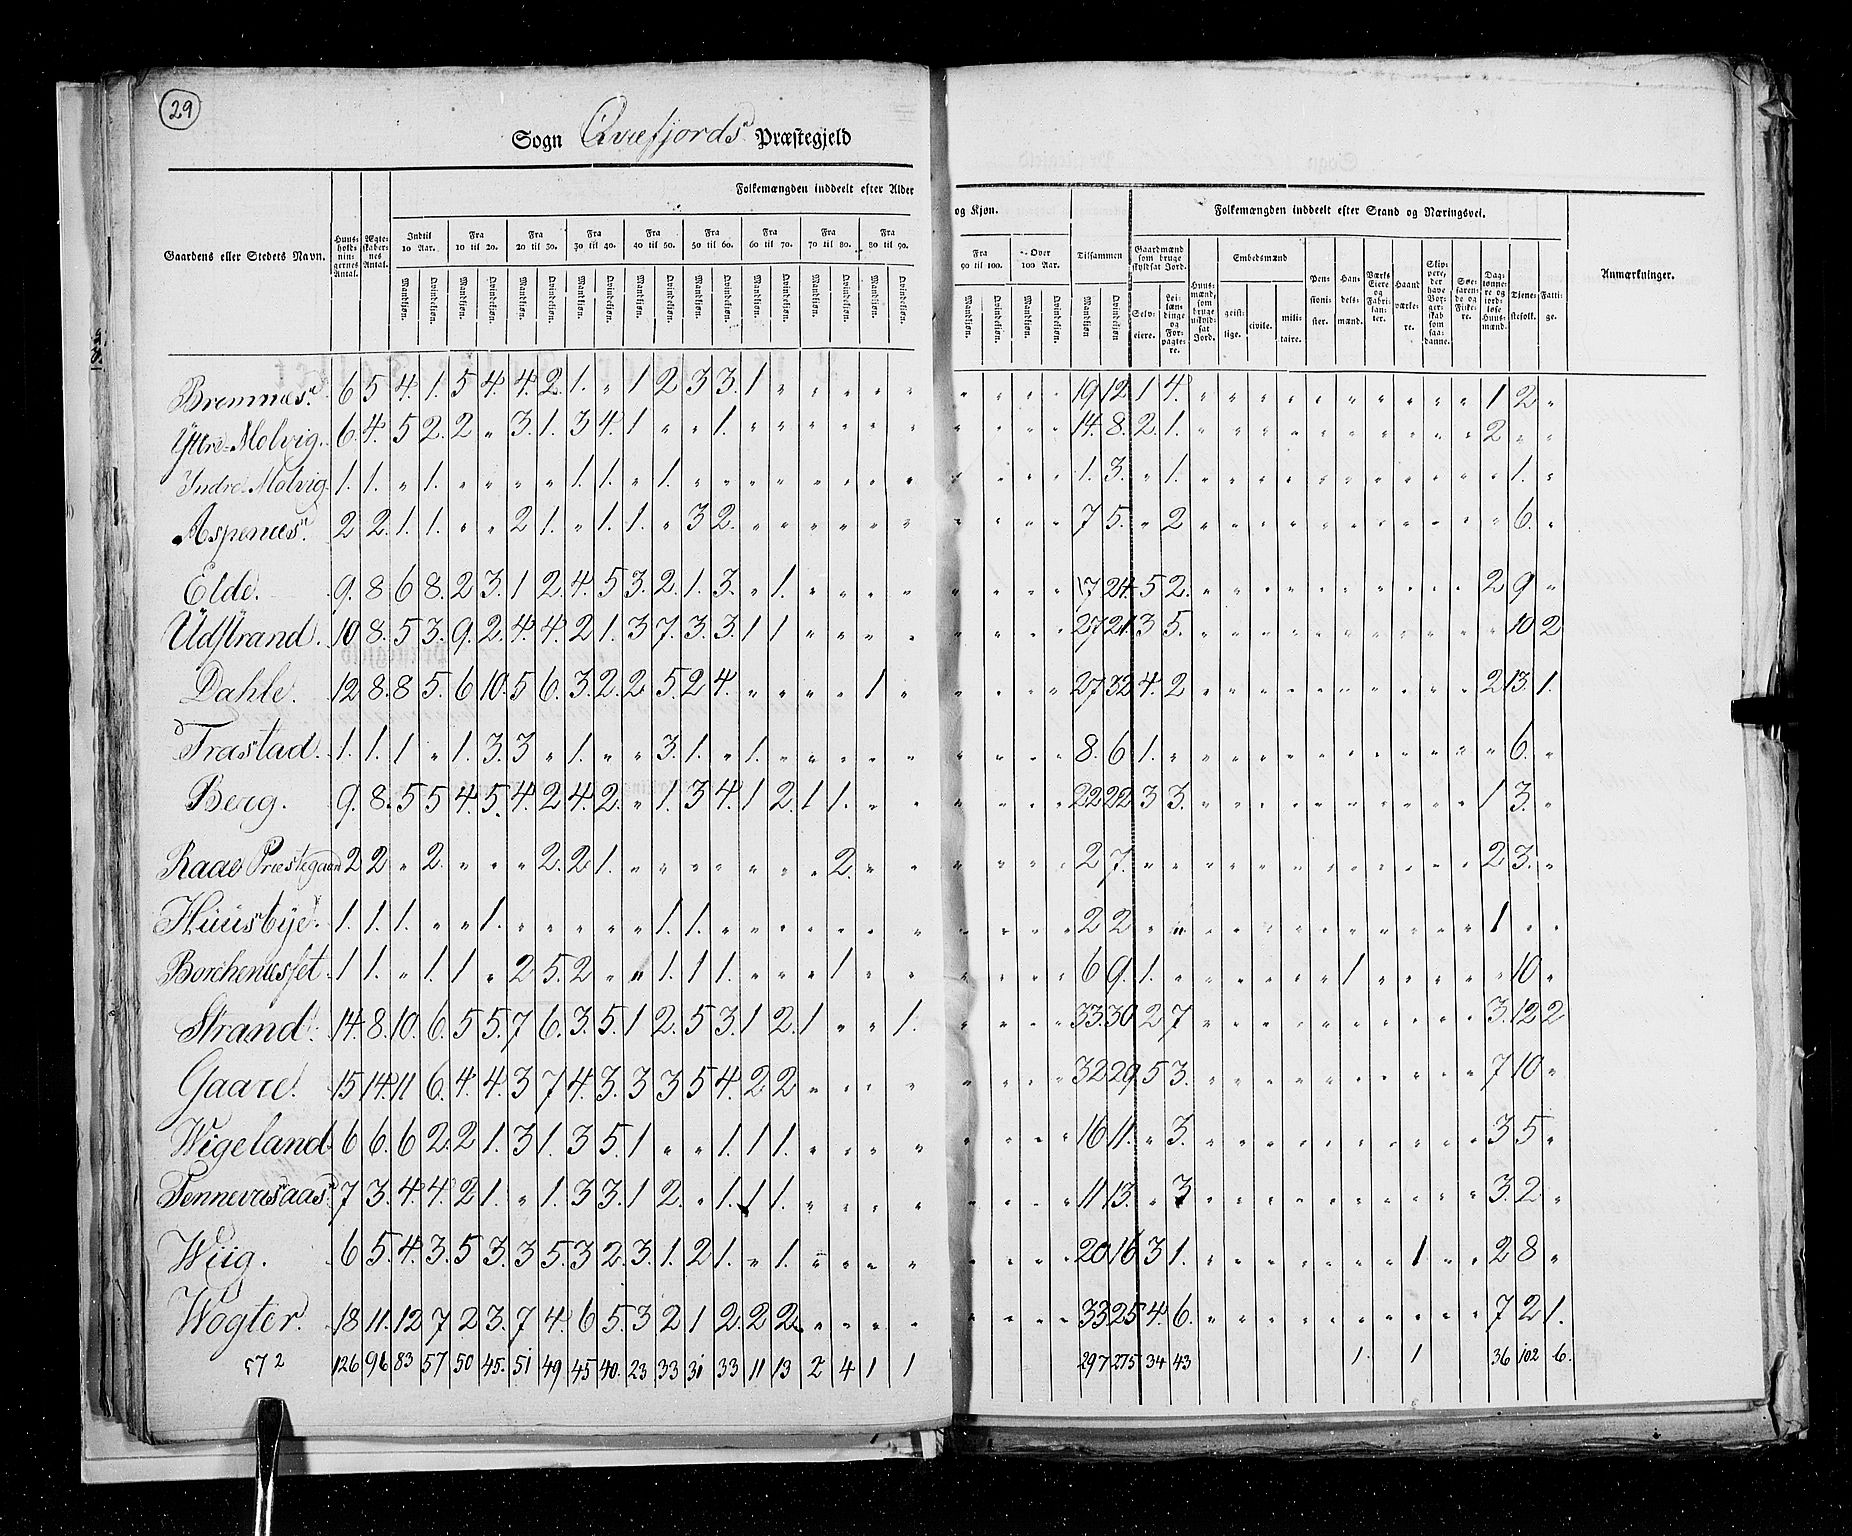 29
Sogn Qvæfjords Præstegjeld
Folkemængden inddeelt efter Alder og Kjøn.
Folkemængden inddeelt efter Stand og Næringsvei.
Gaardens eller Stedets Navn. Huus-holdnin-gernes Antal. Ægte-skaber-nes Antal. Indtil 10 Aar. Fra 10 til 20. Fra 20 til 30. Fra 30 til 40. Fra 40 til 50. Fra 50 til 60. Fra 60 til 70. Fra 70 til 80. Fra 80 til 90. Fra 90 til 100. Over 100 Aar. Tilsammen Gaardmænd som bruge skyldsat Jord. Huus-mænd, som bruge uskyld-sat Jord. Embedsmænd Pen-sioni-ster. Han-dels-mænd. Værks Eiere og Fabri-kan-ter. Haand værke-re. Skip-pere, der have Bor-gerskab som saa-danne. Søe-farende og Fiske-re. Dag-lønne-re og jord-løse Huus-mænd. Tjene-stefolk. Fatti-ge. Anmærkninger.
Mandkjøn. Qvindekjøn. Mandkjøn. Qvindekjøn. Mandkjøn. Qvindekjøn. Mandkjøn. Qvindekjøn. Mandkjøn. Qvindekjøn. Mandkjøn. Qvindekjøn. Mandkjøn. Qvindekjøn. Mandkjøn. Qvindekjøn. Mandkjøn. Qvindekjøn. Mandkjøn. Qvindekjøn. Mandkjøn. Qvindekjøn. Mandkjøn Qvindekjøn. Selv-eiere. Lei-læn-dinge og For-pagte-re. geist-lige. civile. mili-taire.
Bremnæs. 6 5 4. 1. 5 4. 4. 2. 1. " 1 2 3 3. 1 " " " " " " " " " 19 12 1 4. " " " " " " " " " " 1 2 "
Yttre-Molvig. 6. 4. 5 2. 2 " 3. 1. 3 4. 1 " " 1. " " " " " " " " " " 14. 8. 2. 1. " " " " " " " " " " 2 " "
Indre Molvig 1. 1. " 1. " " " " 1. 1. " 1. " " " " " " " " " " " " 1. 3. " 1. " " " " " " " " " " " 1. "
Aspenæs. 2 2. 1. 1. " " 2 1. " 1. 1. " 3 2. " " " " " " " " " " 7 5. " 2 " " " " " " " " " " " 6. "
Elde. 9. 8 6 8. 2 3. 1 2. 4. 5 3. 2. 1. 3. " 1. " " " " " " " " 17 24. 5 2. " " " " " " " " " " 2 9 "
Udstrand. 10 8. 5 3. 9. 2. 4. 4. 2 1. 3 7. 3. 3. 1 1 " " " " " " " " 27 21 3 5. " " " " " " " " " " " 10 2
Dahle. 12 8. 8 5. 6 10. 5 6. 3. 2. 2 5. 2 4. " " " " 1 " " " " " 27 32 4. 2 " " " " " " " " " " 2 13. 1.
Trastad. 1. 1. 1 " 1. 3. 3 " 1. " " 3. 1. " 1. " " " " " " " " " 8. 6 1. " " " " " " " " " " " " 6. "
Berg. 9. 8. 5 5 4. 5. 4. 2 4. 2. " 1. 3 4. 1 2. 1 1. " " " " " " 22 22 3 3. " " " " " " " " " " 1 3. "
Raae Præstegaard 2 2 " 2. " " " 2. 2 1. " " " " " " " 2. " " " " " " 2 7. " " " " " " " " " " " " 2 3. "
Huusbye. 1. 1. 1. " " 1. " " " " " 1. 1. " " " " " " " " " " " 2 2 " " " " " " " " " " " " 1 " "
Borchenæsset 1 1. " 1. 1 " 2 5. 2 " " 1. 1 1. " " " 1 " " " " " " 6 9. 1. " " " " " " 1 " " " " " 10 "
Strand. 14. 8. 10. 6. 5 5. 7 6. 3. 5. 1 2. 5 3. 1 2. 1 " " 1. " " " " 33. 30 2 7 " " " " " " " " " " 3. 12 2
Gaare. 15 14. 11 6. 4. 4. 3 7 4. 3. 3 3 5 4. 2 2 " " " " " " " " 32 29 5 3. " " " " " " " " " " 7 10 "
Wigeland 6 6. 6 2. 2 1. 3 1. 3 5. 1 " " 1. 1 1. " " " " " " " " 16 11. " 3. " " " " " " " " " " 3 5 "
Tennevasaas 7 3. 4. 4. 2 1. " 1. 3 3. 1 2. " 1. 1 1. " " " " " " " " 11 13. " 3 " " " " " " " " " " 3. 2 "
Wiig. 6 5. 4. 3. 5 3. 3 5. 3 2. 3. 1. 2 1. " 1. " " " " " " " " 20 16 3 1. " " " " " " " 1 " " 2 8 "
Wogter. 18 11. 12 7 2 3. 7 4. 6 5. 3 2 1 2. 2 2. " " " " " " " " 33 25 4. 6. " " " " " " " " " " 7 2 1.
572 126 96 83 57 50 45. 51 49 45 40. 23 33 31 33 11 13 2 4 1 1 297 275 34 43 1. 1 36 102 6.